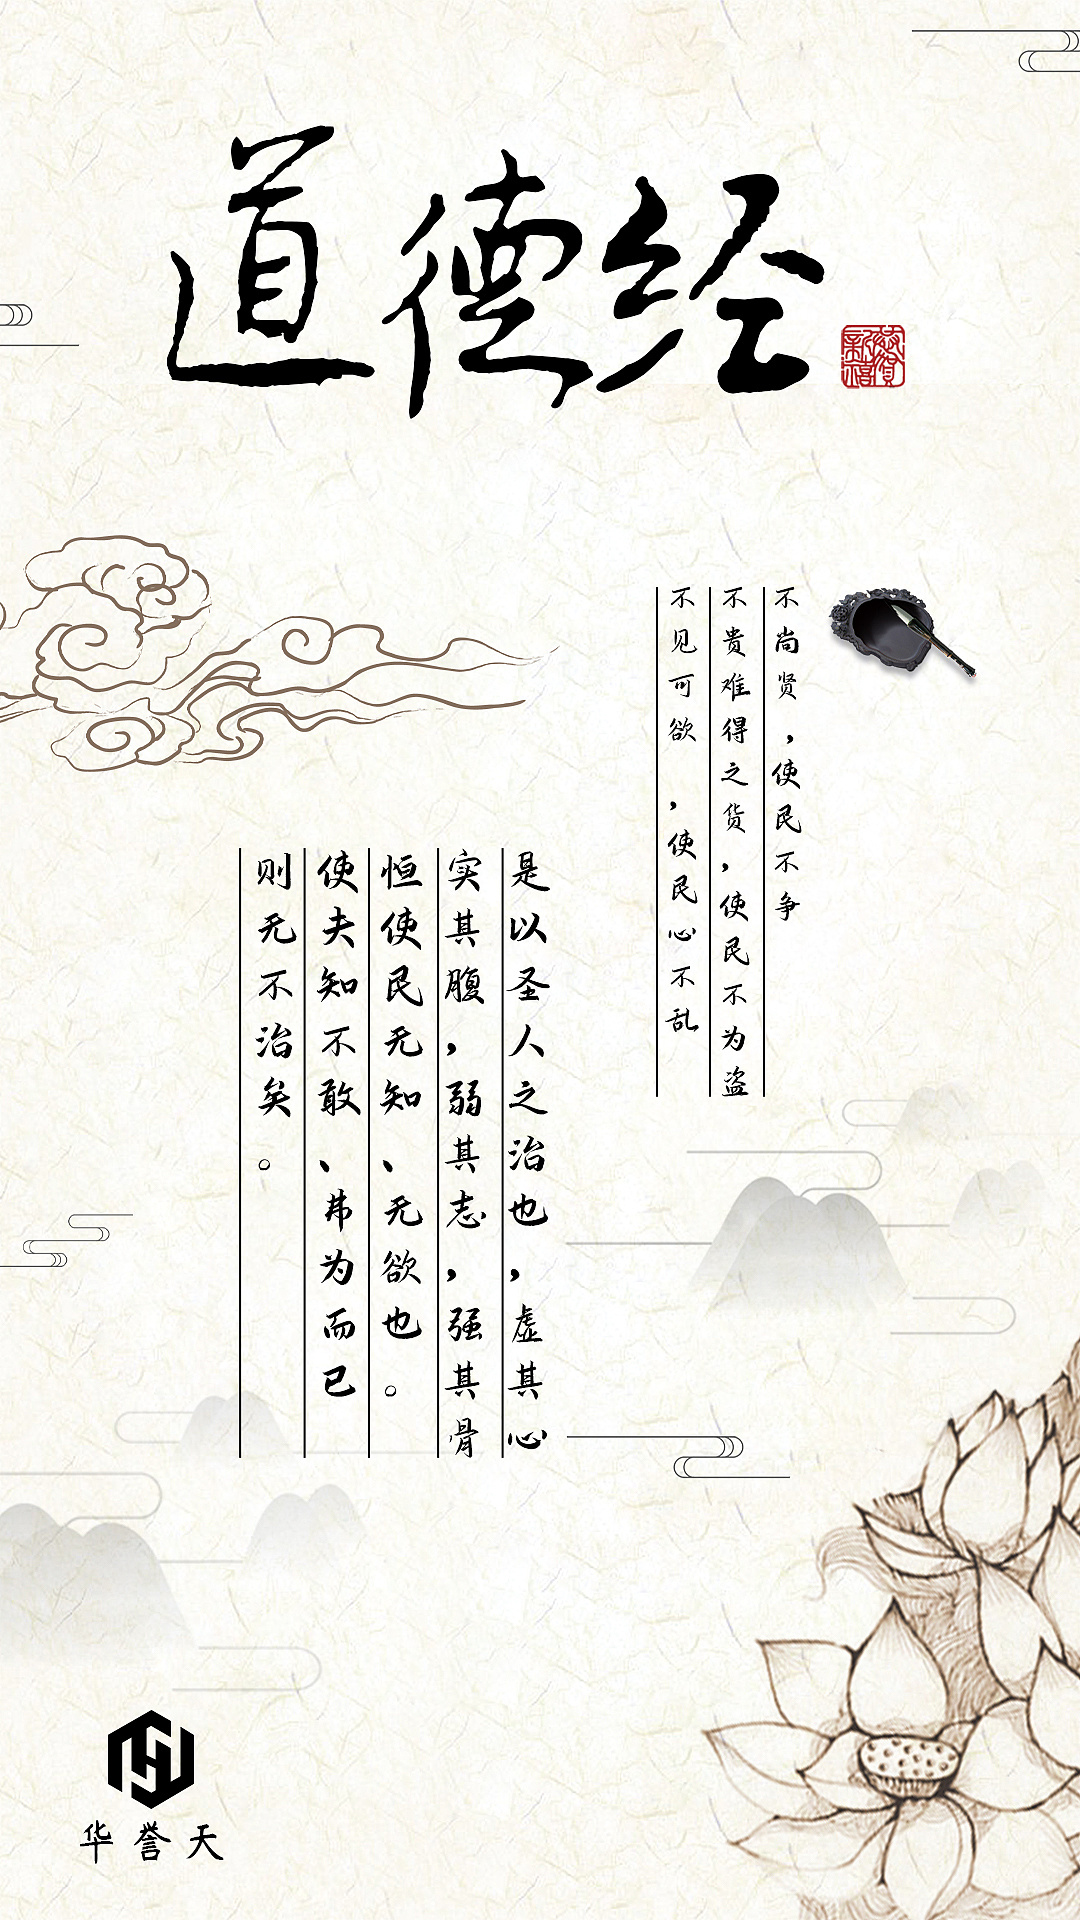 道德经
恭贺新禧
不尚贤，使民不争
不贵难得之货，使民不为盗
不见可欲，使民心不乱
是以圣人之治也，虚其心
实其腹，弱其志，强其骨
恒使民无知、无欲也。
使夫知不敢、弗为而已
则无不治矣。
华誉天